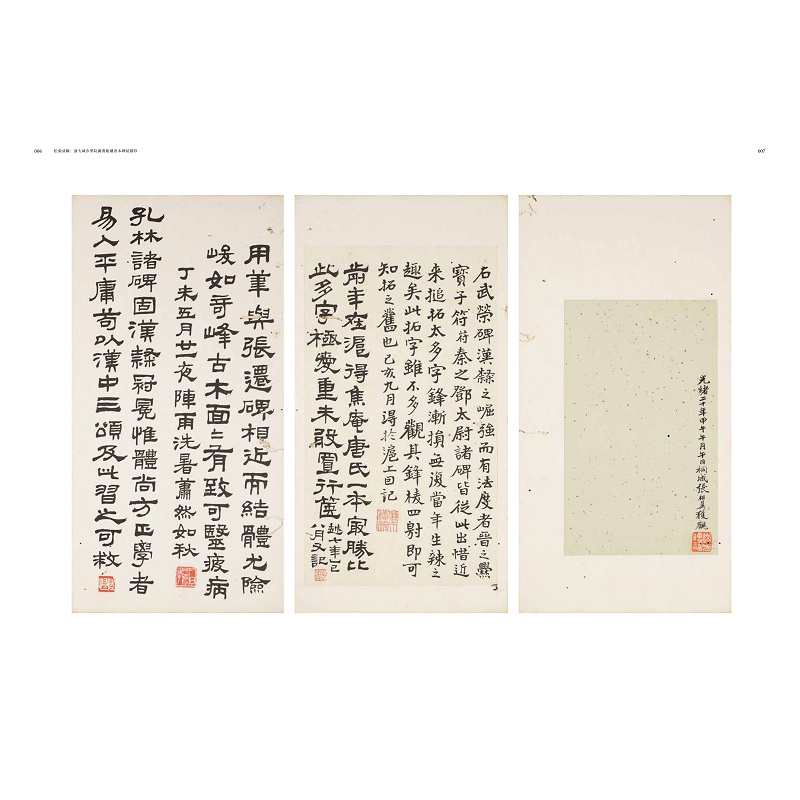 006
007
浙大城市學院圖書館藏善本碑帖擷珍
光緒二十年甲午午月午日桐城張祖翼獲觀
石武榮碑漢隸之崛強而有法度者晉之爨
寶子符苻秦之鄧太尉諸碑皆從此出惜近
来搥拓太多字鋒漸損無復當年生辣之
趣矣此拓字雖不多觀其鋒棱四射即可
知拓之舊也己亥九月得於滬上因記
年在滬得焦庵唐氏一本寂勝比
此多字極愛重未敢置行篋
越七年丁巳
八月又記
用筆與張遷碑相近而結體尤險
峻如奇峰古木面〻有致可醫疲病
丁未五月廿一夜陣雨洗暑蕭然如秋
孔林諸碑固漢隸冠冕惟體尚方正學者
易入平庸苟以漢中三頌及此習之可救